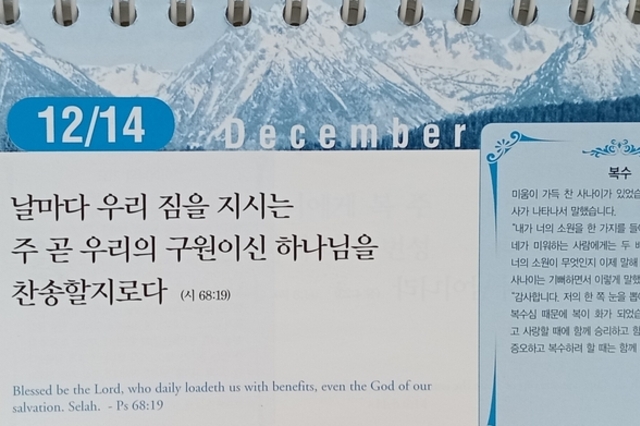 12/14
December
날마다 우리 짐을 지시는
주 곧 우리의 구원이신 하나님을
찬송할지로다 (시 68:19)
Blessed be the Lord, who daily loadeth us with benefits, even the God of our
salvation. Selah. - Ps 68:19
복수
미움이 가득 찬 사나이가 있었
사가 나타나서 말했습니다.
"내가 너의 소원을 한 가지를 들
네가 미워하는 사람에게는 두 배
너의 소원이 무엇인지 이제 말해
사나이는 기뻐하면서 이렇게 말했
"감사합니다. 저의 한 쪽 눈을 뽑
복수심 때문에 복이 화가 되었
고 사랑할 때에 함께 승리하고 함
증오하고 복수하려 할 때는 함께